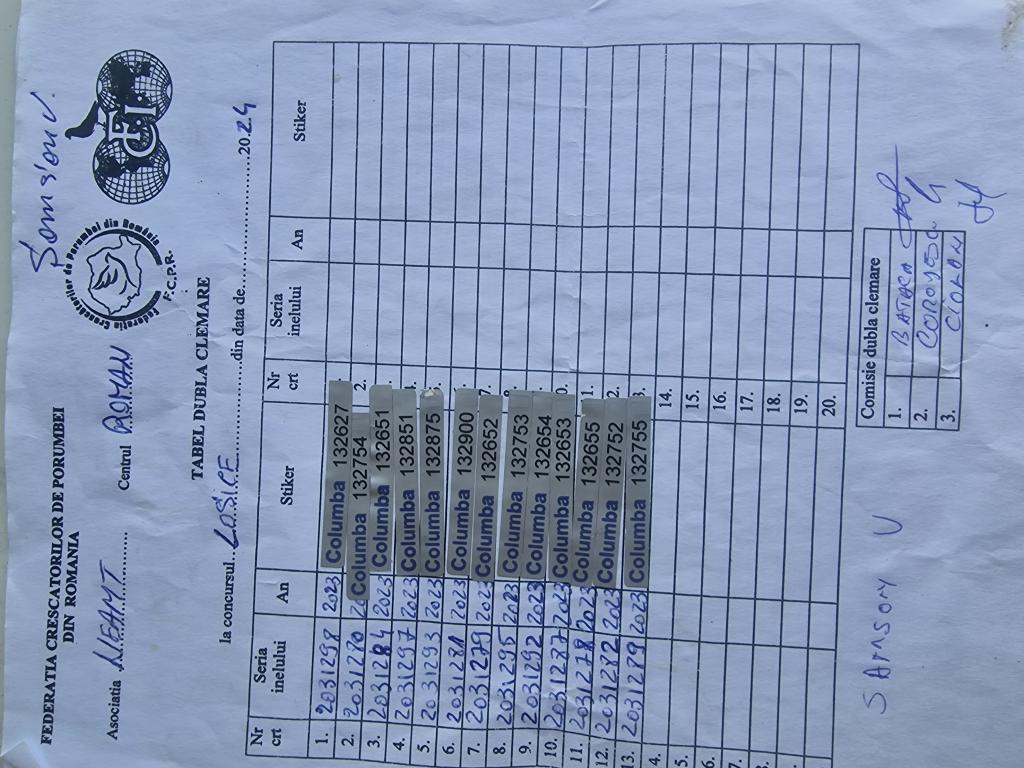 Samson V.
FEDERATIA CRESCATORILOR DE PORUMBEI
DIN ROMANIA
Federația Crescătorilor de Porumbei din România
F.C.P.R.
Asociatia NEAMT Centrul ROMAN
TABEL DUBLA CLEMARE
la concursul LOSICE din data de 2024
Nr crt Seria inelului An Stiker Nr crt Seria inelului An Stiker
1. 2031298 2023 Columba 132627
2. 2031280 20 Columba 132754 2.
3. 2031284 2023 Columba 132651
4. 2031297 2023 Columba 132851
5. 2031293 2023 Columba 132875
6. 2031281 2023 Columba 132900
7. 2031279 2023 Columba 132652 7.
8. 2031295 2023 Columba 132753
9. 2031292 2023 Columba 132654
10. 2031287 2023 Columba 132653 0.
11. 2031278 2023 Columba 132655 1.
12. 2031282 2023 Columba 132752 2.
13. 2031289 2023 Columba 132755 3.
4. 14.
5. 15.
6. 16.
7. 17.
18.
19.
20.
Comisie dubla clemare
1.
2.
3.
SAMSON V